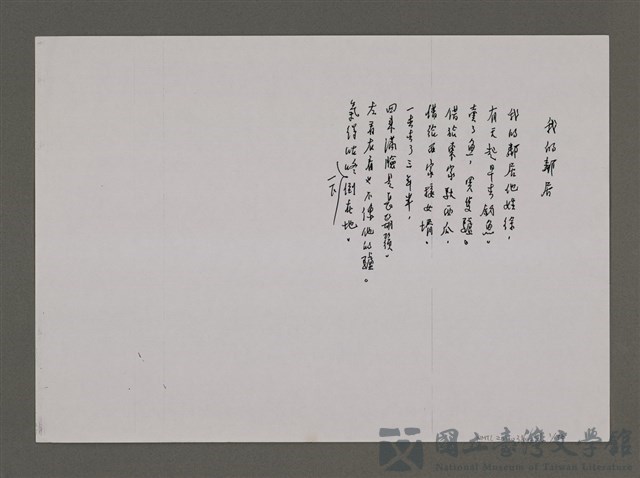 我的鄰居
我的鄰居他姓徐，
有天起早去釣魚。
賣了魚，買隻驢。
借給東家馱西瓜，
借給西家接女婿。
一去去了三年半，
回來滿臉是長鬍鬚。
左看右看也不像他的驢。
氣得咚一下倒在地。
國立臺灣文學館
National Museum of Taiwan Literature